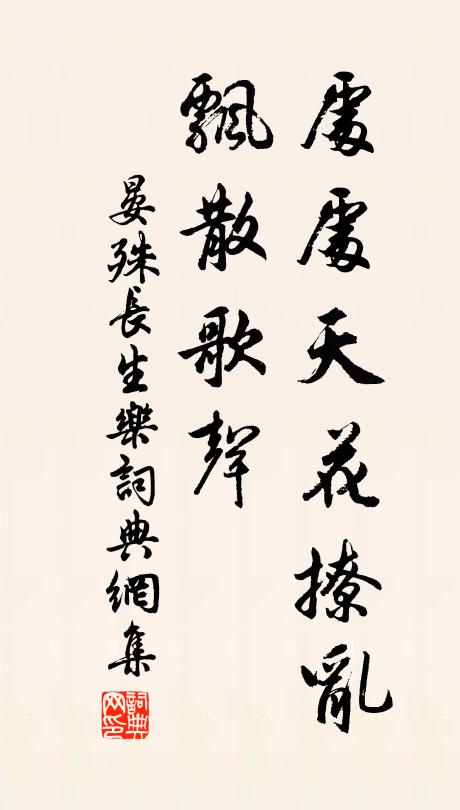 處處天花撩亂
飄散歌聲
晏殊長生樂詞典網集
詞典網印